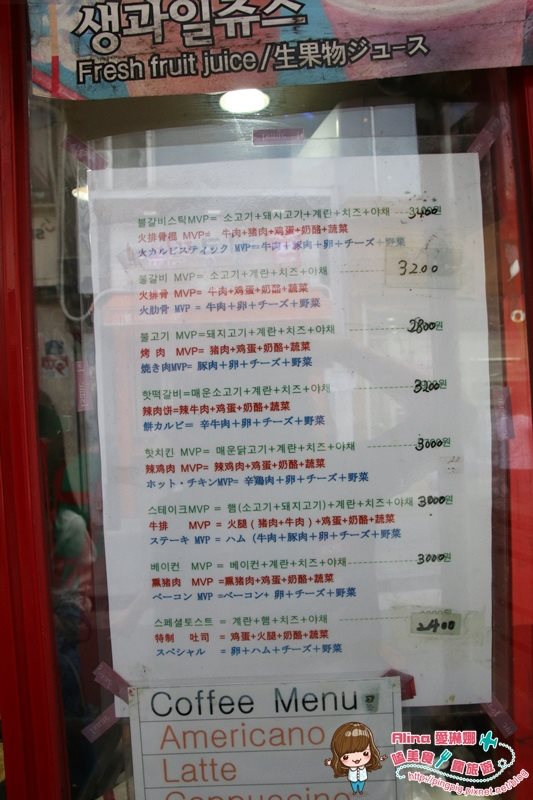 생과일쥬스
Fresh fruit juice/生果物ジュース
불갈비스틱MVP= 소고기+돼지고기+계란+치즈+야채 3400
火排骨棍 MVP= 牛肉+猪肉+鸡蛋+奶酪+蔬菜
火カルビスティック MVP=牛肉+豚肉+卵+チーズ+野菜
불갈비 MVP= 소고기+계란+치즈+야채 3200
火排骨 MVP= 牛肉+鸡蛋+奶酪+蔬菜
火肋骨 MVP = 牛肉+卵+チーズ+野菜
불고기 MVP=돼지고기+계란+치즈+야채 2800원
烤 肉 MVP= 猪肉+鸡蛋+奶酪+蔬菜
焼き肉MVP= 豚肉+卵+チーズ+野菜
핫떡갈비=매운소고기+계란+치즈+야채 원
辣肉饼=辣牛肉+鸡蛋+奶酪+蔬菜
餅カルビ= 辛牛肉+卵+チーズ+野菜
핫치킨 MVP= 매운닭고기+계란+치즈+야채 3000원
辣鸡肉 MVP= 辣鸡肉+鸡蛋+奶酪+蔬菜
ホット・チキンMVP= 辛鶏肉+卵+チーズ+野菜
스테이크MVP = 햄(소고기+돼지고기)+계란+치즈+야채 원
牛排 MVP = 火腿(猪肉+牛肉)+鸡蛋+奶酪+蔬菜
ステーキ MVP = ハム(牛肉+豚肉+卵+チーズ+野菜
베이컨 MVP = 베이컨+계란+치즈+야채 3000원
熏猪肉 MVP =熏猪肉+鸡蛋+奶酪+蔬菜
ベーコン MVP =ベーコン+ 卵+チーズ+野菜
스페셜토스트 = 계란+햄+치즈+야채 2400
特制 吐司 = 鸡蛋+火腿+奶酪+蔬菜
スペシャル = 卵+ハム+チーズ+野菜
Coffee Menu
Americano
Latte
Cappuccino
Alina 愛琳娜
嗑美食 瘋旅遊
http://pingpig.pixnet.net/blog